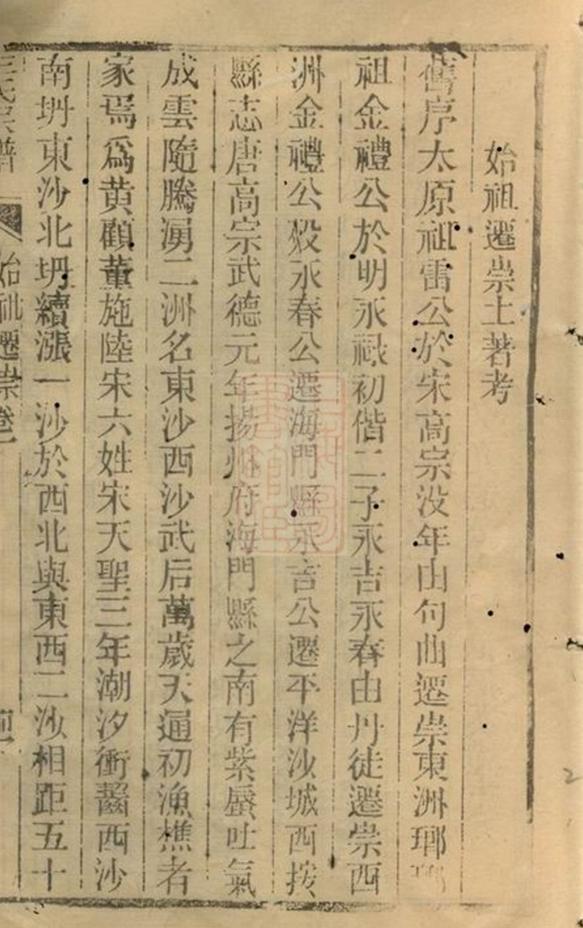 始祖遷崇土著考
舊序太原祖雷公於宋高宗没年由句曲遷崇東洲瑯琊
祖金禮公於明永祿初偕二子永吉永春由丹徒遷崇西
洲金禮公殁永春公遷海門縣永吉公遷平洋沙城西按
縣志唐高宗武德元年揚州府海門縣之南有紫蜃吐氣
成雲隨騰湧二洲名東沙西沙武后萬歲天通初漁樵者
家焉爲黄顧董施陸宋六姓宋天聖三年潮汐衝齧西沙
南坍東沙北坍續漲一沙於西北與東西二沙相距五十
氏宗譜 始祖遷崇卷一